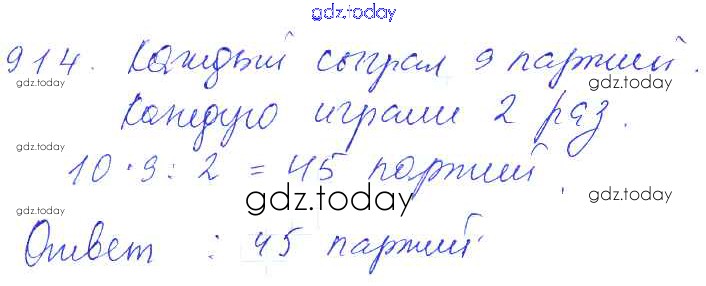 gdz.today
914. Каждый сыграл 9 партий.
gdz.today
gdz.today
Каждую играли 2 раз.
gdz.today
10·9:2 = 45 партий.
gdz.today
gdz.today
gdz.today
Ответ : 45 партий
gdz.today